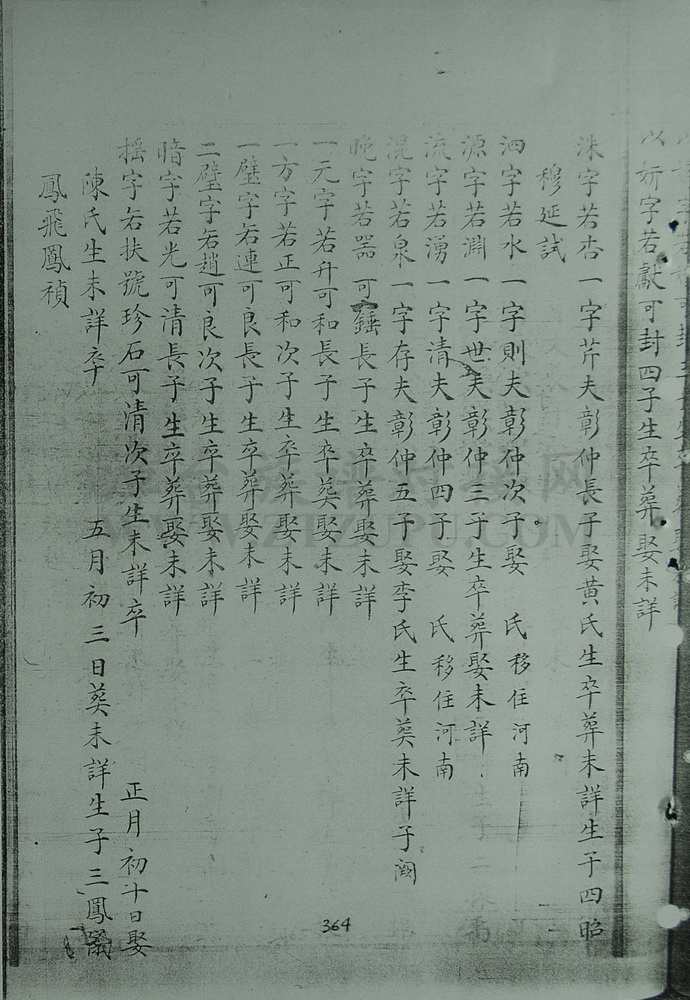 妍字若獻可封四子生卒葬娶未詳
洙字若杏一字芹夫彰仲長子娶黃氏生卒葬未詳生子四昭
穆延試
泗字若水一字則夫彰仲次子娶 氏移住河南
源字若淵一字世夫彰仲三子生卒葬娶未詳
流字若湧一字清夫彰仲四子娶 氏移住河南
混字若泉一字存夫彰仲五子娶李氏生卒葬未詳子闕
晚字若器可錘長子生卒葬娶未詳
一元字若升可和長子生卒葬娶未詳
一方字若正可和次子生卒葬娶未詳
一璧字若連可良長子生卒葬娶未詳
二璧字若趙可良次子生卒葬娶未詳
字若光可清長子生卒葬娶未詳
搖字若扶號珍石可清次子生未詳卒 正月初十日娶
陳氏生未詳卒 五月初三日葬未詳生子三鳳
鳳飛鳳禎
364